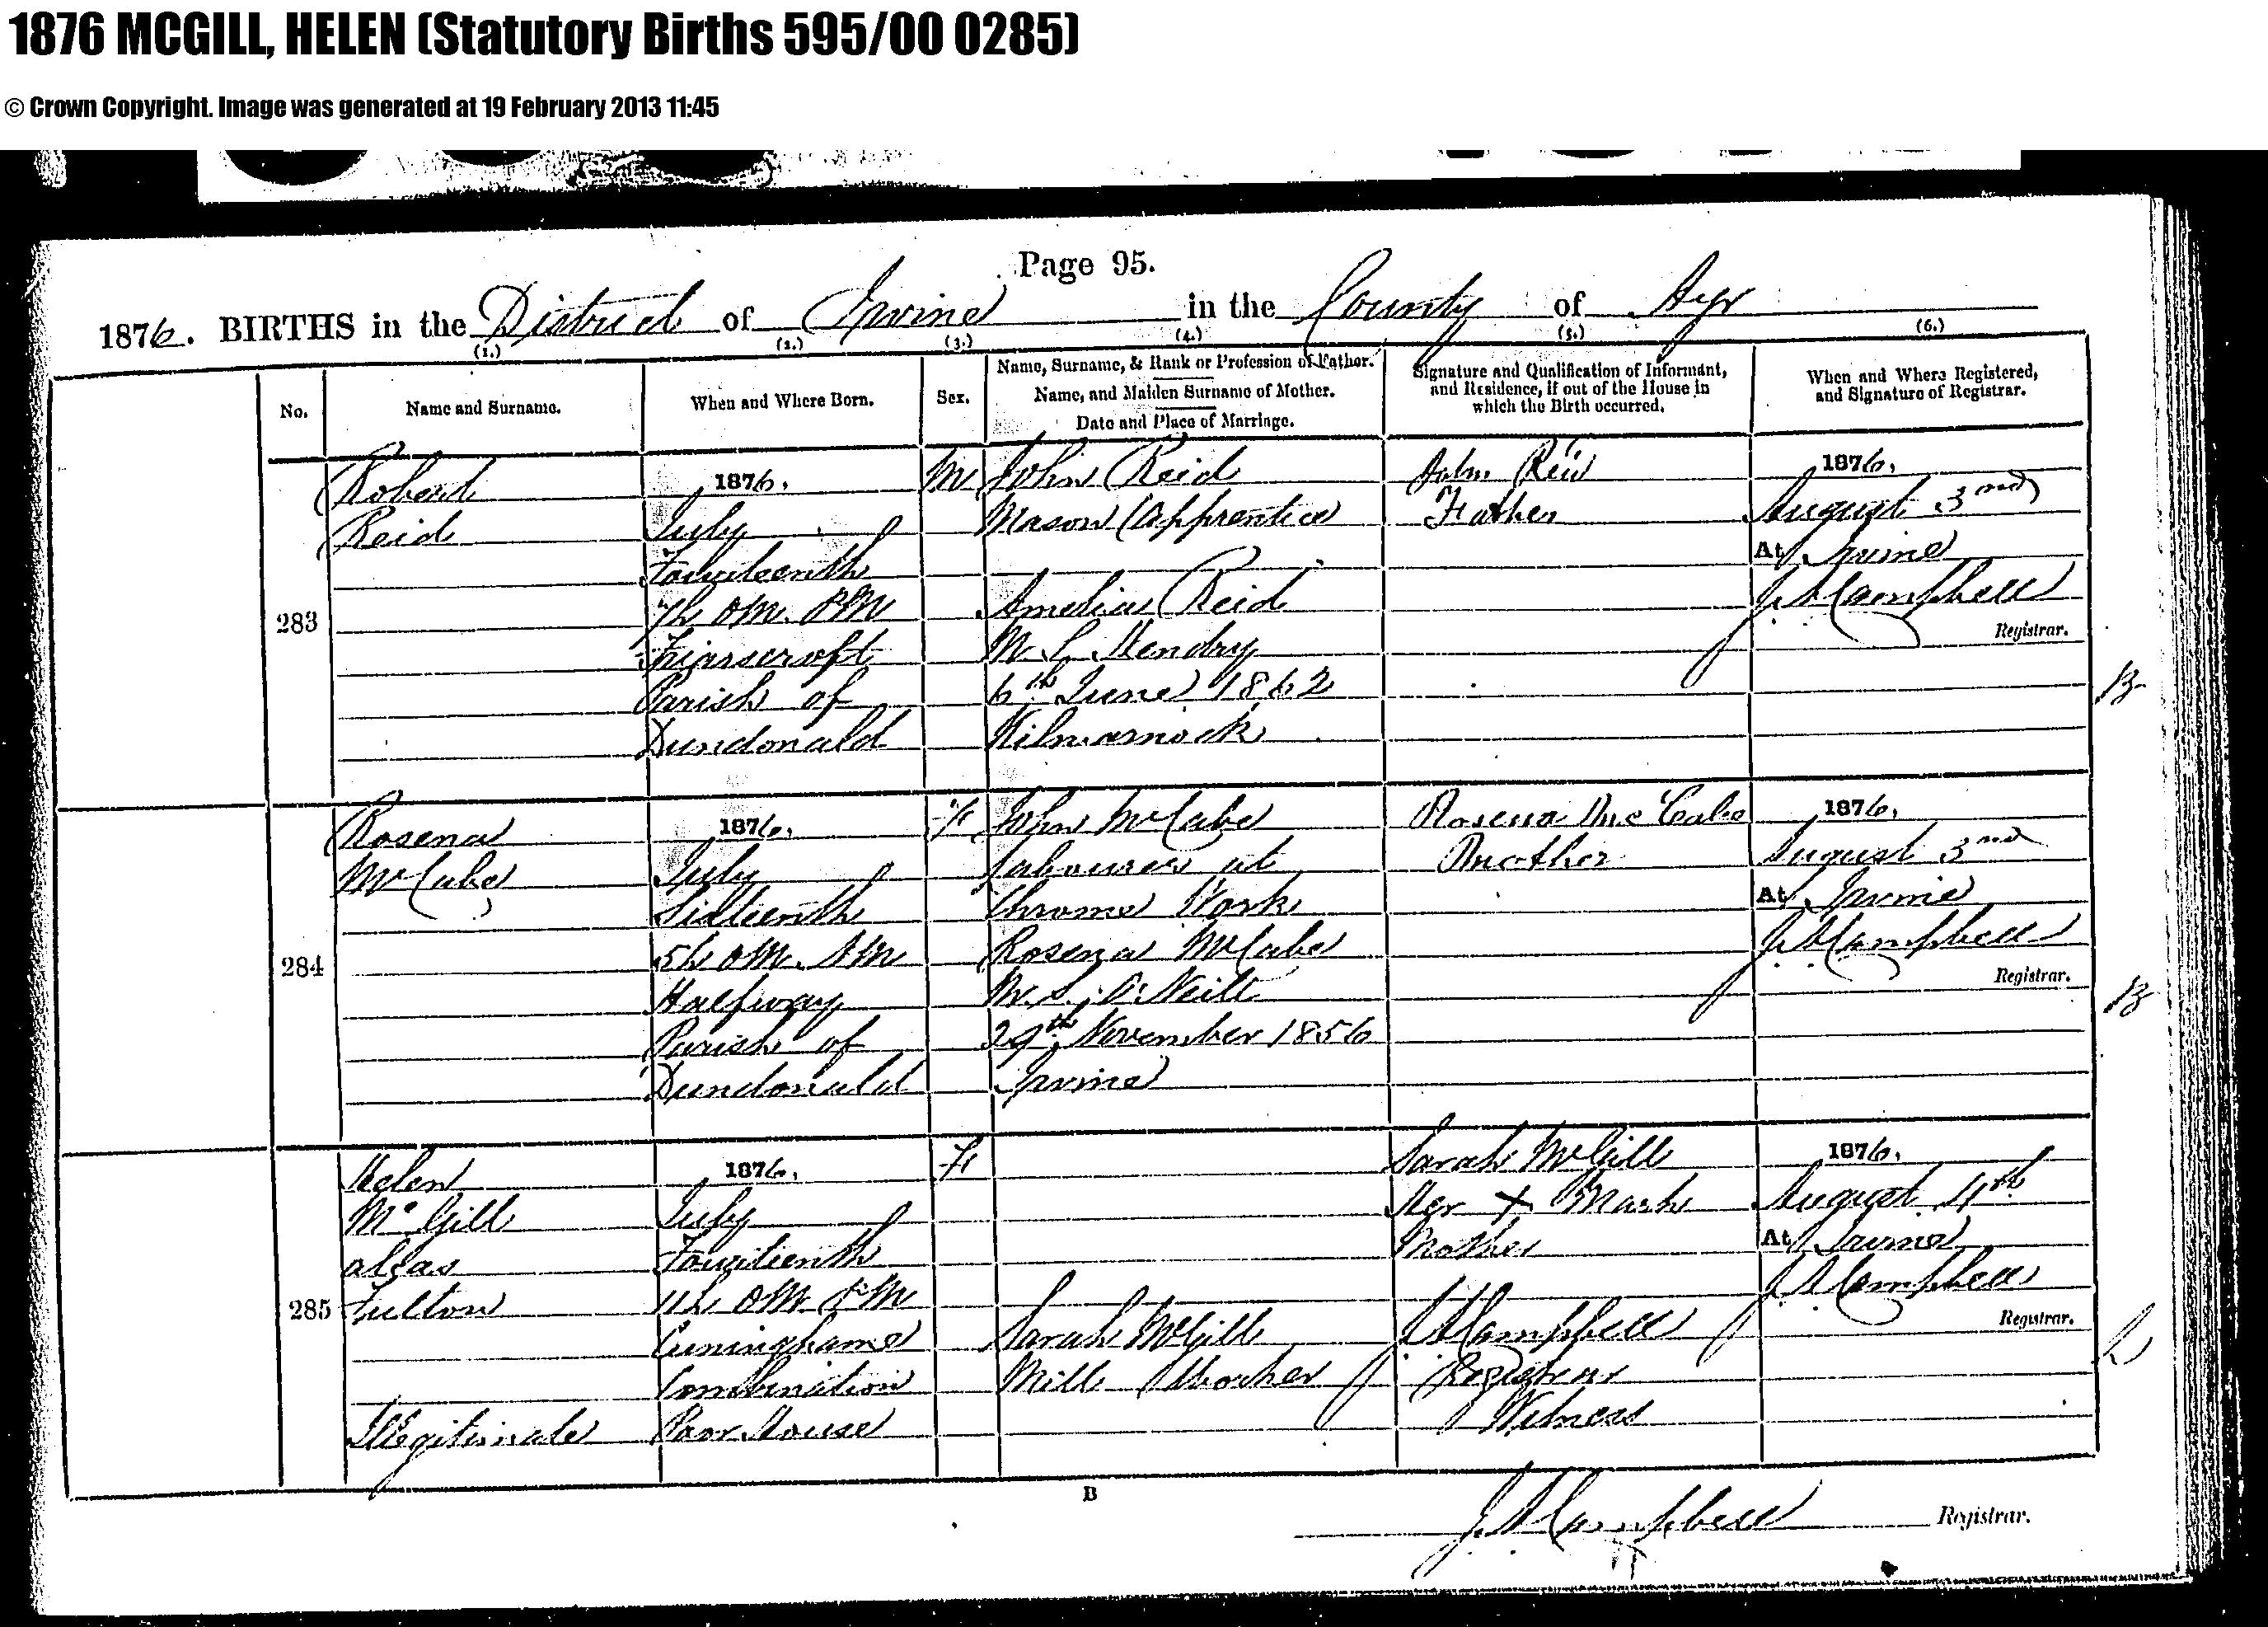 1876 MCGILL, HELEN (Statutory Births 595/00 0285)
© Crown Copyright. Image was generated at 19 February 2013 11:45
Page 95.
1876. BIRTHS in the District of Irvine in the County of Ayr
(1.) (2.) (3.) (4.) (5.) (6.)
No.
Name and Surname.
When and Where Born.
Sex.
Name, Surname, & Rank or Profession of Father.
Name, and Maiden Surname of Mother.
Date and Place of Marriage.
Signature and Qualification of Informant,
and Residence, if out of the House in
which the Birth occurred.
When and Where Registered,
and Signature of Registrar.
283
Robert
Reid
1876.
July
Fourteenth
7h 0m. PM
Friarscroft
Parish of
Dundonald
M
John Reid
Mason (Apprentice
Amelia Reid
M. S. Hendry
6th June 1862
Kilmarnock
John Reid
Father
1876.
August 3rd
At Irvine
J. Campbell
Registrar.
B
284
Rosena
McCabe
1876.
July
Sixteenth
5h 0m. AM
Halfway
Parish of
Dundonald
F
John McCabe
Labourer at
Chrome Work
Rosena McCabe
M. S. O'Neill
29th November 1856
Irvine
Rosena McCabe
Mother
1876.
August 3rd
At Irvine
J. Campbell
Registrar.
B
285
Helen
McGill
alias
Fulton
Illegitimate
1876.
July
Fourteenth
11h 0m PM
Cuninghame
Combination
Poor House
F
Sarah McGill
Mill Worker
Sarah McGill
Her X Mark
Mother
J Campbell
Registrar
Witness
1876.
August 4th
At Irvine
J Campbell
Registrar.
B
J Campbell Registrar.